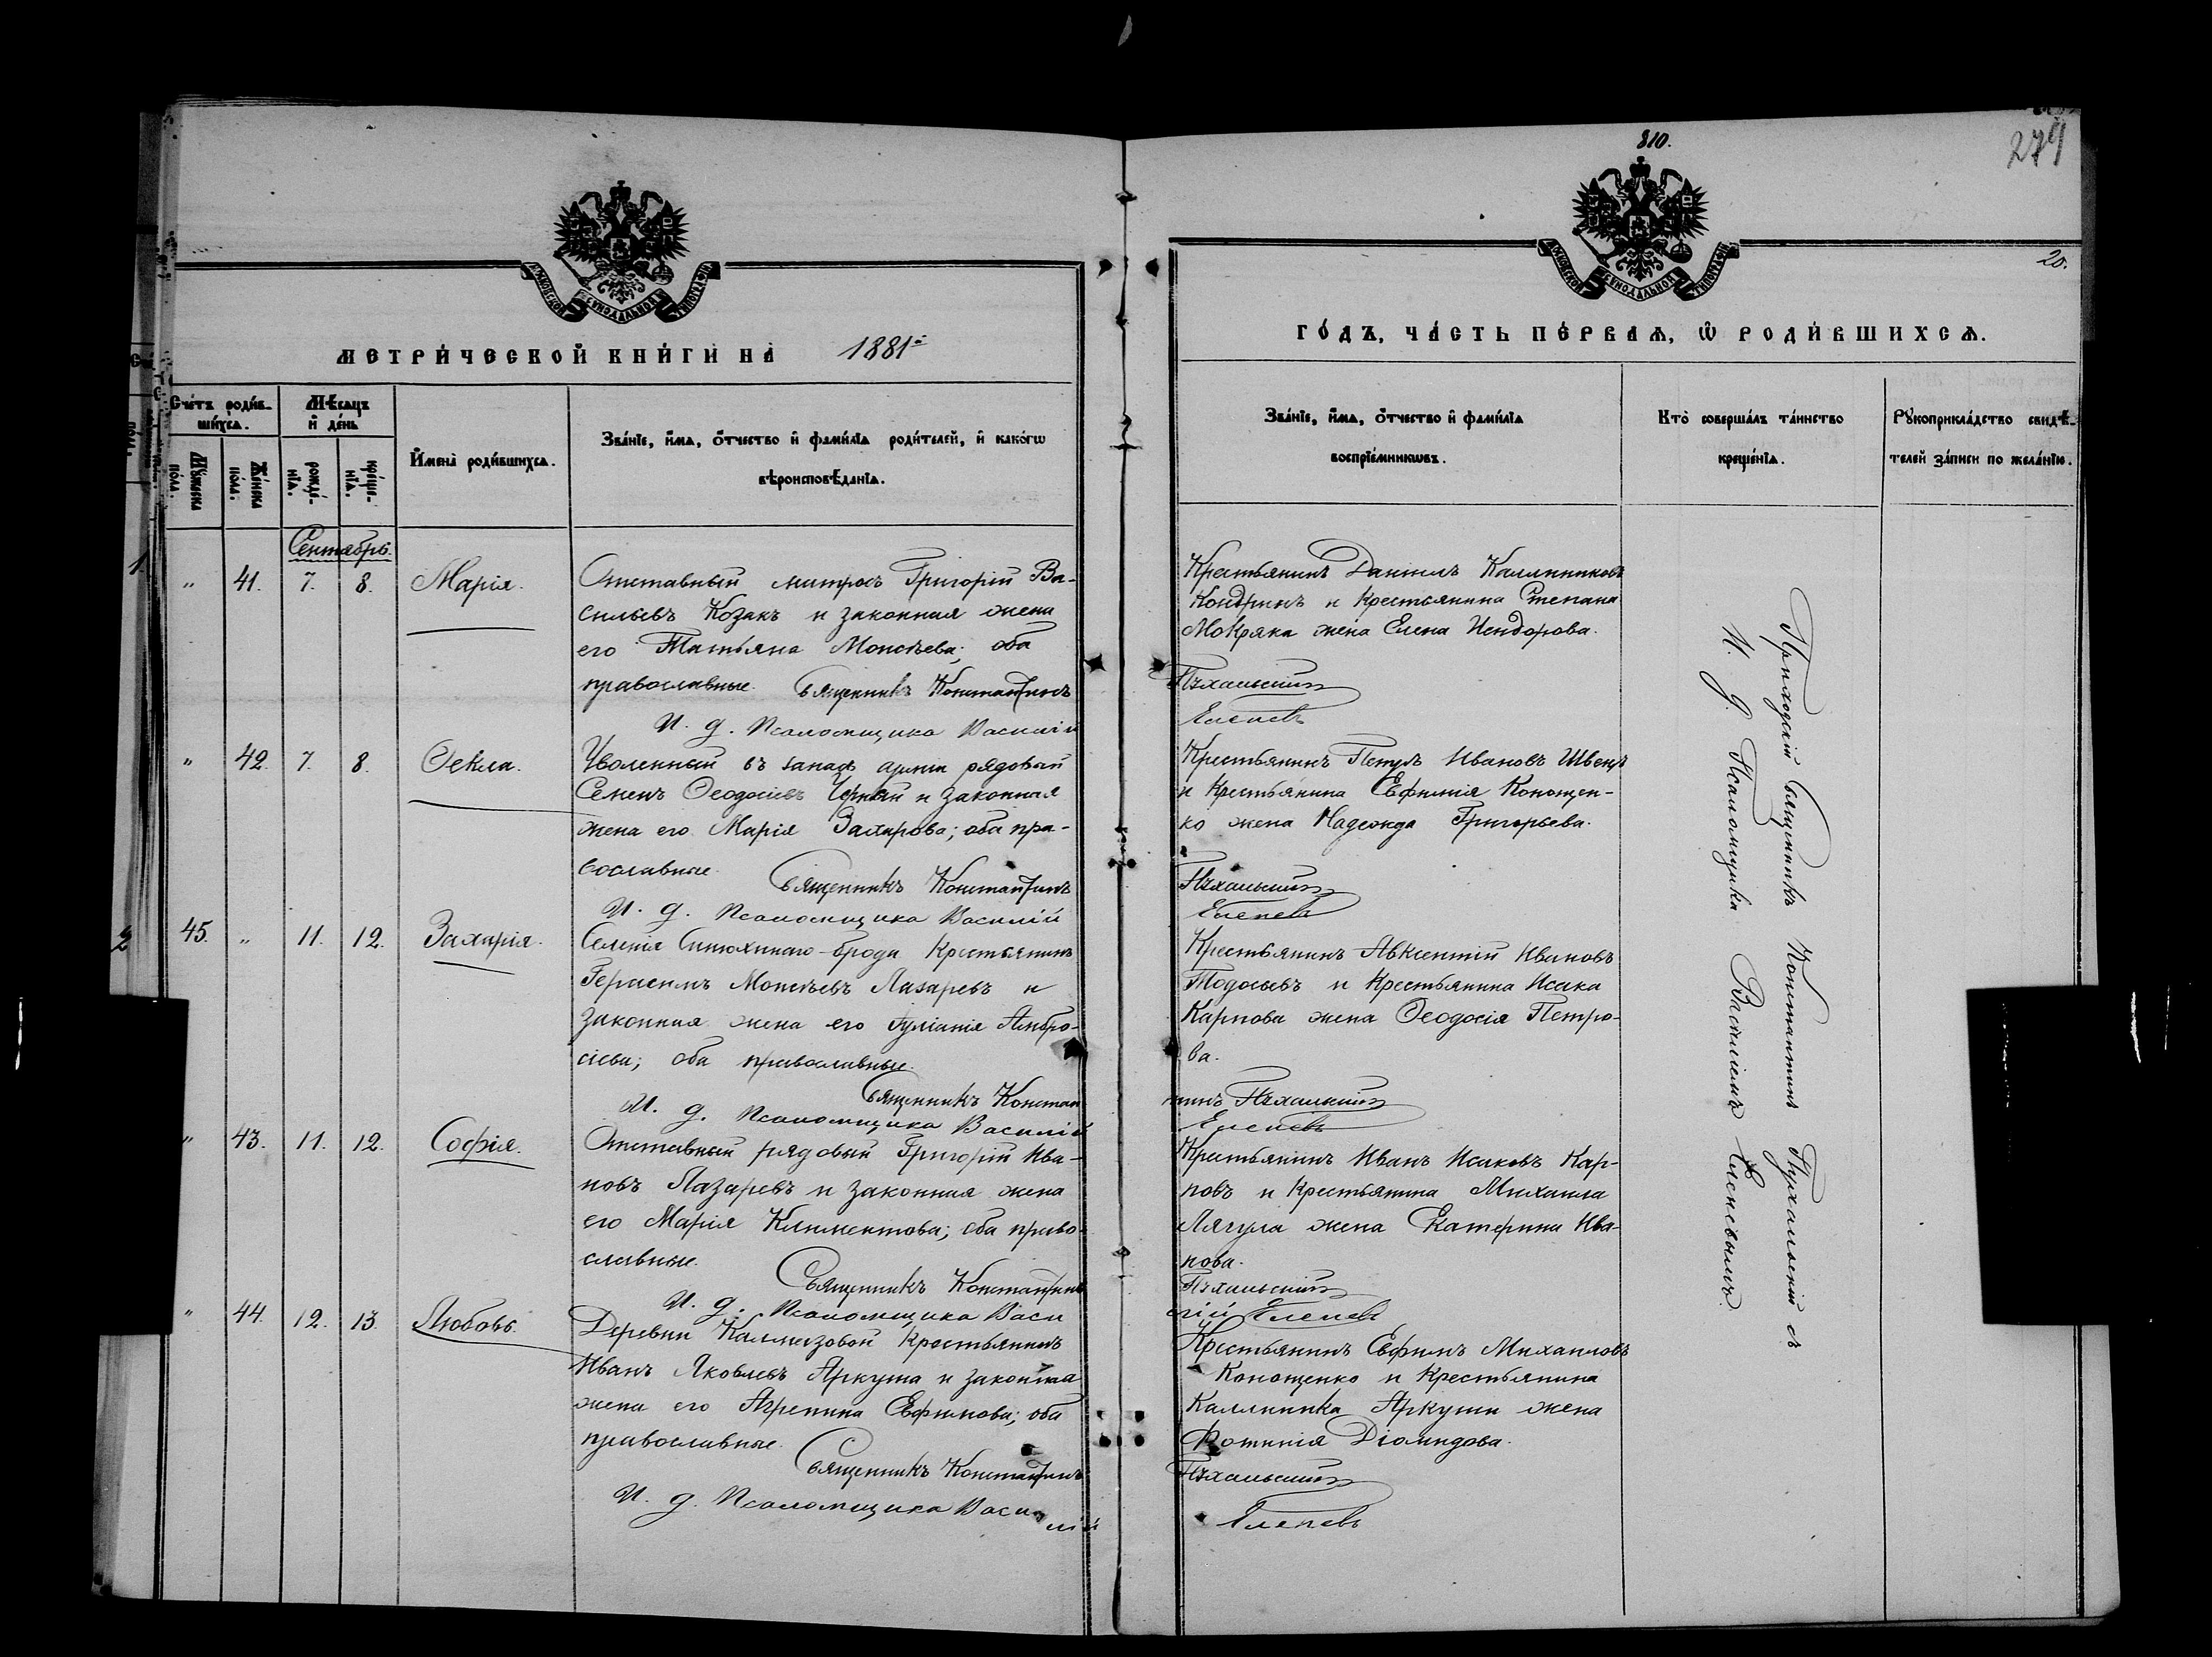 810.
279
20.
МЕТРИ́ЧЕСКОЙ КНИ́ГИ НА̀ 1881й
ГО́ДЪ, ЧА́СТЬ ПЕ́РВАѦ, Ѡ҆ РОДИ́ВШИХСѦ.
Сче́тъ роди́в-
шихсѧ.
Мѣ́сѧцъ
и҆ де́нь
Мꙋ́жеска
по́ла.
Же́нска
по́ла.
рожде́-
нїѧ.
креще́-
нїѧ.
И҆мена̀ роди́вшихсѧ.
Зва́нїе, и҆́мѧ, о҆́тчество и҆ фами́лїѧ роди́телей, и҆ како́гѡ
вѣроисповѣ́данїѧ.
Зва́нїе, и҆́мѧ, о҆́тчество и҆ фами́лїѧ
воспрїе́мникѡвъ.
Кто̀ соверша́лъ та́инство
креще́нїѧ.
Рꙋкоприкла́дство свидѣ́-
телей за́писи по жела́нїю.
Сентябрь.
" 41. 7. 8. Марія.
Отставный матросъ Григорій Ва-
сильевъ Козакъ и законная жена
его Татьяна Моисѣева; оба
православные. Священникъ Константинъ
И. д. Псаломщика Василій
Крестьянинъ Даніилъ Каллиниковъ
Кондринъ и Крестьянина Степана
Мокряка жена Елена
Пухальскій
Еленевъ
" 42. 7. 8. Ѳекла.
Уволенный въ запасъ арміи рядовый
Семенъ Ѳеодосіевъ Черный и законная
жена его Марія Захарова; оба пра-
вославные.
Священникъ Константинъ
И. д. Псаломщика Василій
Крестьянинъ Петръ Ивановъ Швецъ
и Крестьянина Евфимія Конощен-
ко жена Надежда Григорьева.
Пухальскій
Еленевъ
45. " 11. 12. Захарія.
Селенія Синюхинаго-брода Крестьянинъ
Герасимъ Моисѣевъ Лазаревъ и
законная жена его Іуліанія Амвро-
сіева; оба православные.
Священникъ Констан
И. д. Псаломщика Василій
Крестьянинъ Авксентій Ивановъ
Тодосьевъ и Крестьянина Исака
Карпова жена Ѳеодосія Петро-
ва.
тинъ Пухальскій
Еленевъ
" 43. 11. 12. Софія.
Отставный рядовый Григорій Ива-
новъ Лазаревъ и законная жена
его Марія Климентова; оба право-
славные.
Священникъ Константинъ
И. д. Псаломщика Васи
Крестьянинъ Иванъ Исаковъ Кар-
повъ и Крестьянина Михаила
Лягула жена Екатерина Ива-
нова.
Пухальскій
лій Еленевъ
" 44. 12. 13. Любовь.
Деревни Крестьянинъ
Иванъ Яковлевъ Аркуша и законная
жена его Агрепина Евфимова; оба
православные.
Священникъ Константинъ
И. д. Псаломщика Василій
Крестьянинъ Евфимъ Михаиловъ
Конощенко и Крестьянина
Каллиника Аркуши жена
Фотинія Діомидова.
Пухальскій
Еленевъ
Приходскій Священникъ Константинъ Пухальскій съ
И. д. Псаломщика Василіемъ Еленевымъ.